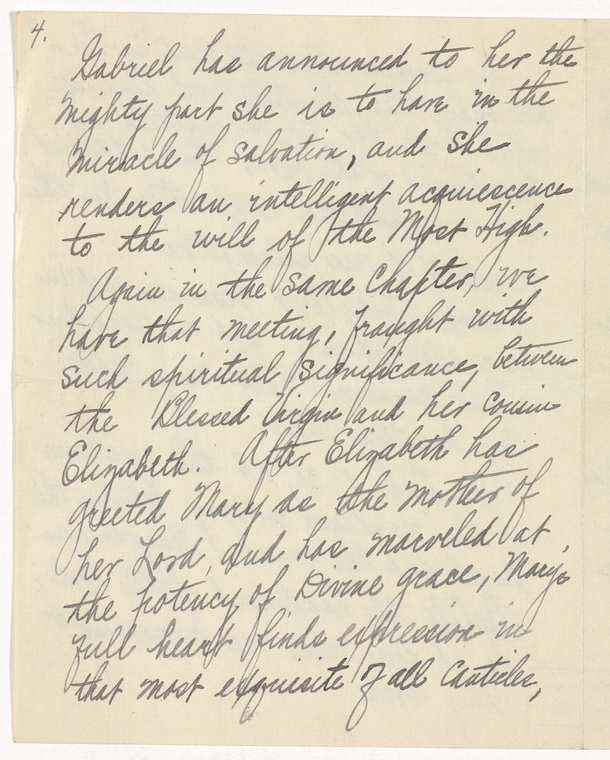 4.
Gabriel has announced to her the
mighty part she is to have in the
miracle of salvation, and she
renders an intelligent acquiescence
to the will of the Most High.
Again in the same Chapter, we
have that meeting, fraught with
such spiritual significance, between
the Blessed Virgin and her cousin
Elizabeth. After Elizabeth has
greeted Mary as the mother of
her Lord, and has marveled at
the potency of Divine grace, Mary's
full heart finds expression in
that most exquisite of all Canticles,